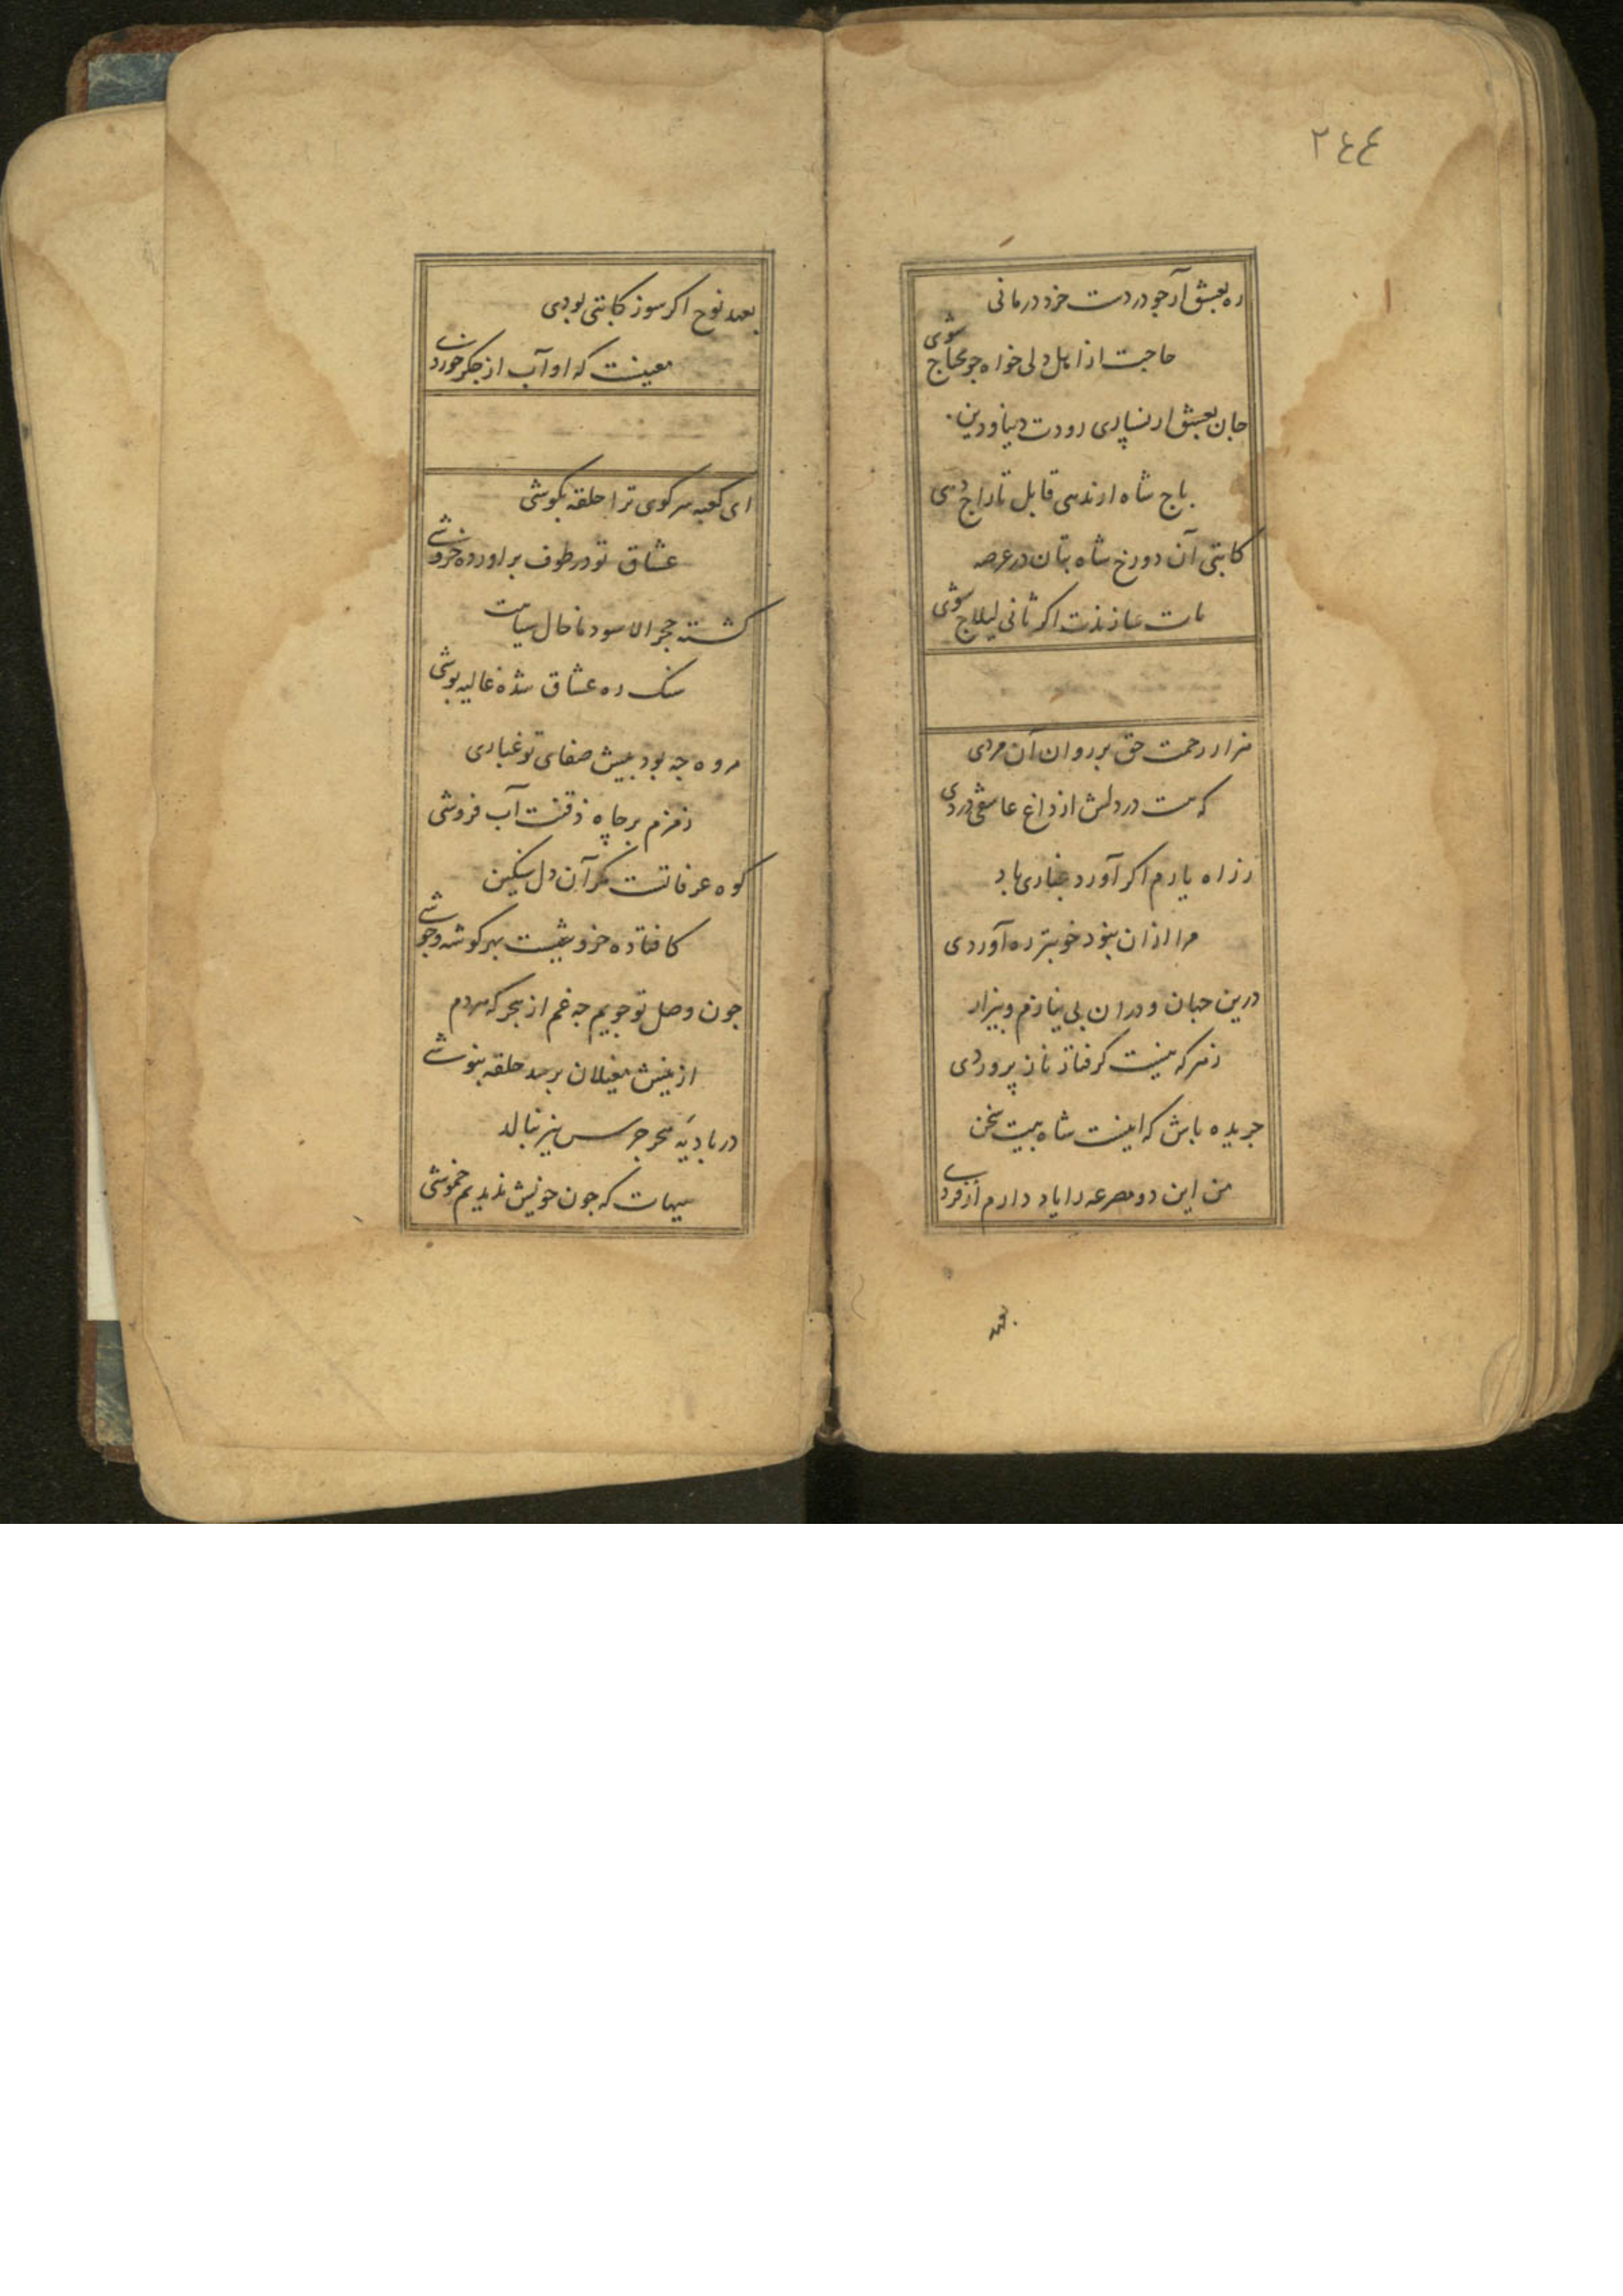 ٢٤٤
ره بعشق آر جو دردت خرد درمانی
حاجت از اهل دلی خواه جو محتاج شوی
جان بعشق ار نسپاری رودت دنیا و دین
باج شاه ار ندهی قابل تاراج دهی
کاتبی آن دو رخ شاه بتان در عرصه
مات سازندت اکر ثانی لیلاج شوی
هزار رحمت حق بر روان آن مردی
که هست در دلش از داغ عاشقی دردی
ز راه یارم اکر آورد غباری باد
مرا ازان نبود خوبتر ره آوردی
درین جهان و دران بی نیازم و بیزار
ز هر که نیست کرفتار ناز پروردی
جریده باش که اینست شاه بیت سخن
من این دو مصرعه را یاد دارم از فردی
بعهد
بعهد نوح اکر سوز کاتبی بودی
معینست که او آب از جکر خوردی
ای کعبه سر کوی ترا حلقه بکوشی
عشاق تو در طوف براورده خروشی
کشته حجر الاسود ما خال سیاهت
سنک ره عشاق شده غالیه پوشی
مروه جه بود پیش صفای تو غباری
زمزم بر چاه ذقنت آب فروشی
کوه عرفاتست مکر آن دل سنکین
کافتاده خروشیست بهر کوشه و جوشی
جون وصل تو جویم جه غم از هجر که مردم
از نیش مغیلان برسد حلقه بنوشی
در بادیۀ هجر جرس نیز بنالد
هیهات که جون خویش ندیدیم خموشی